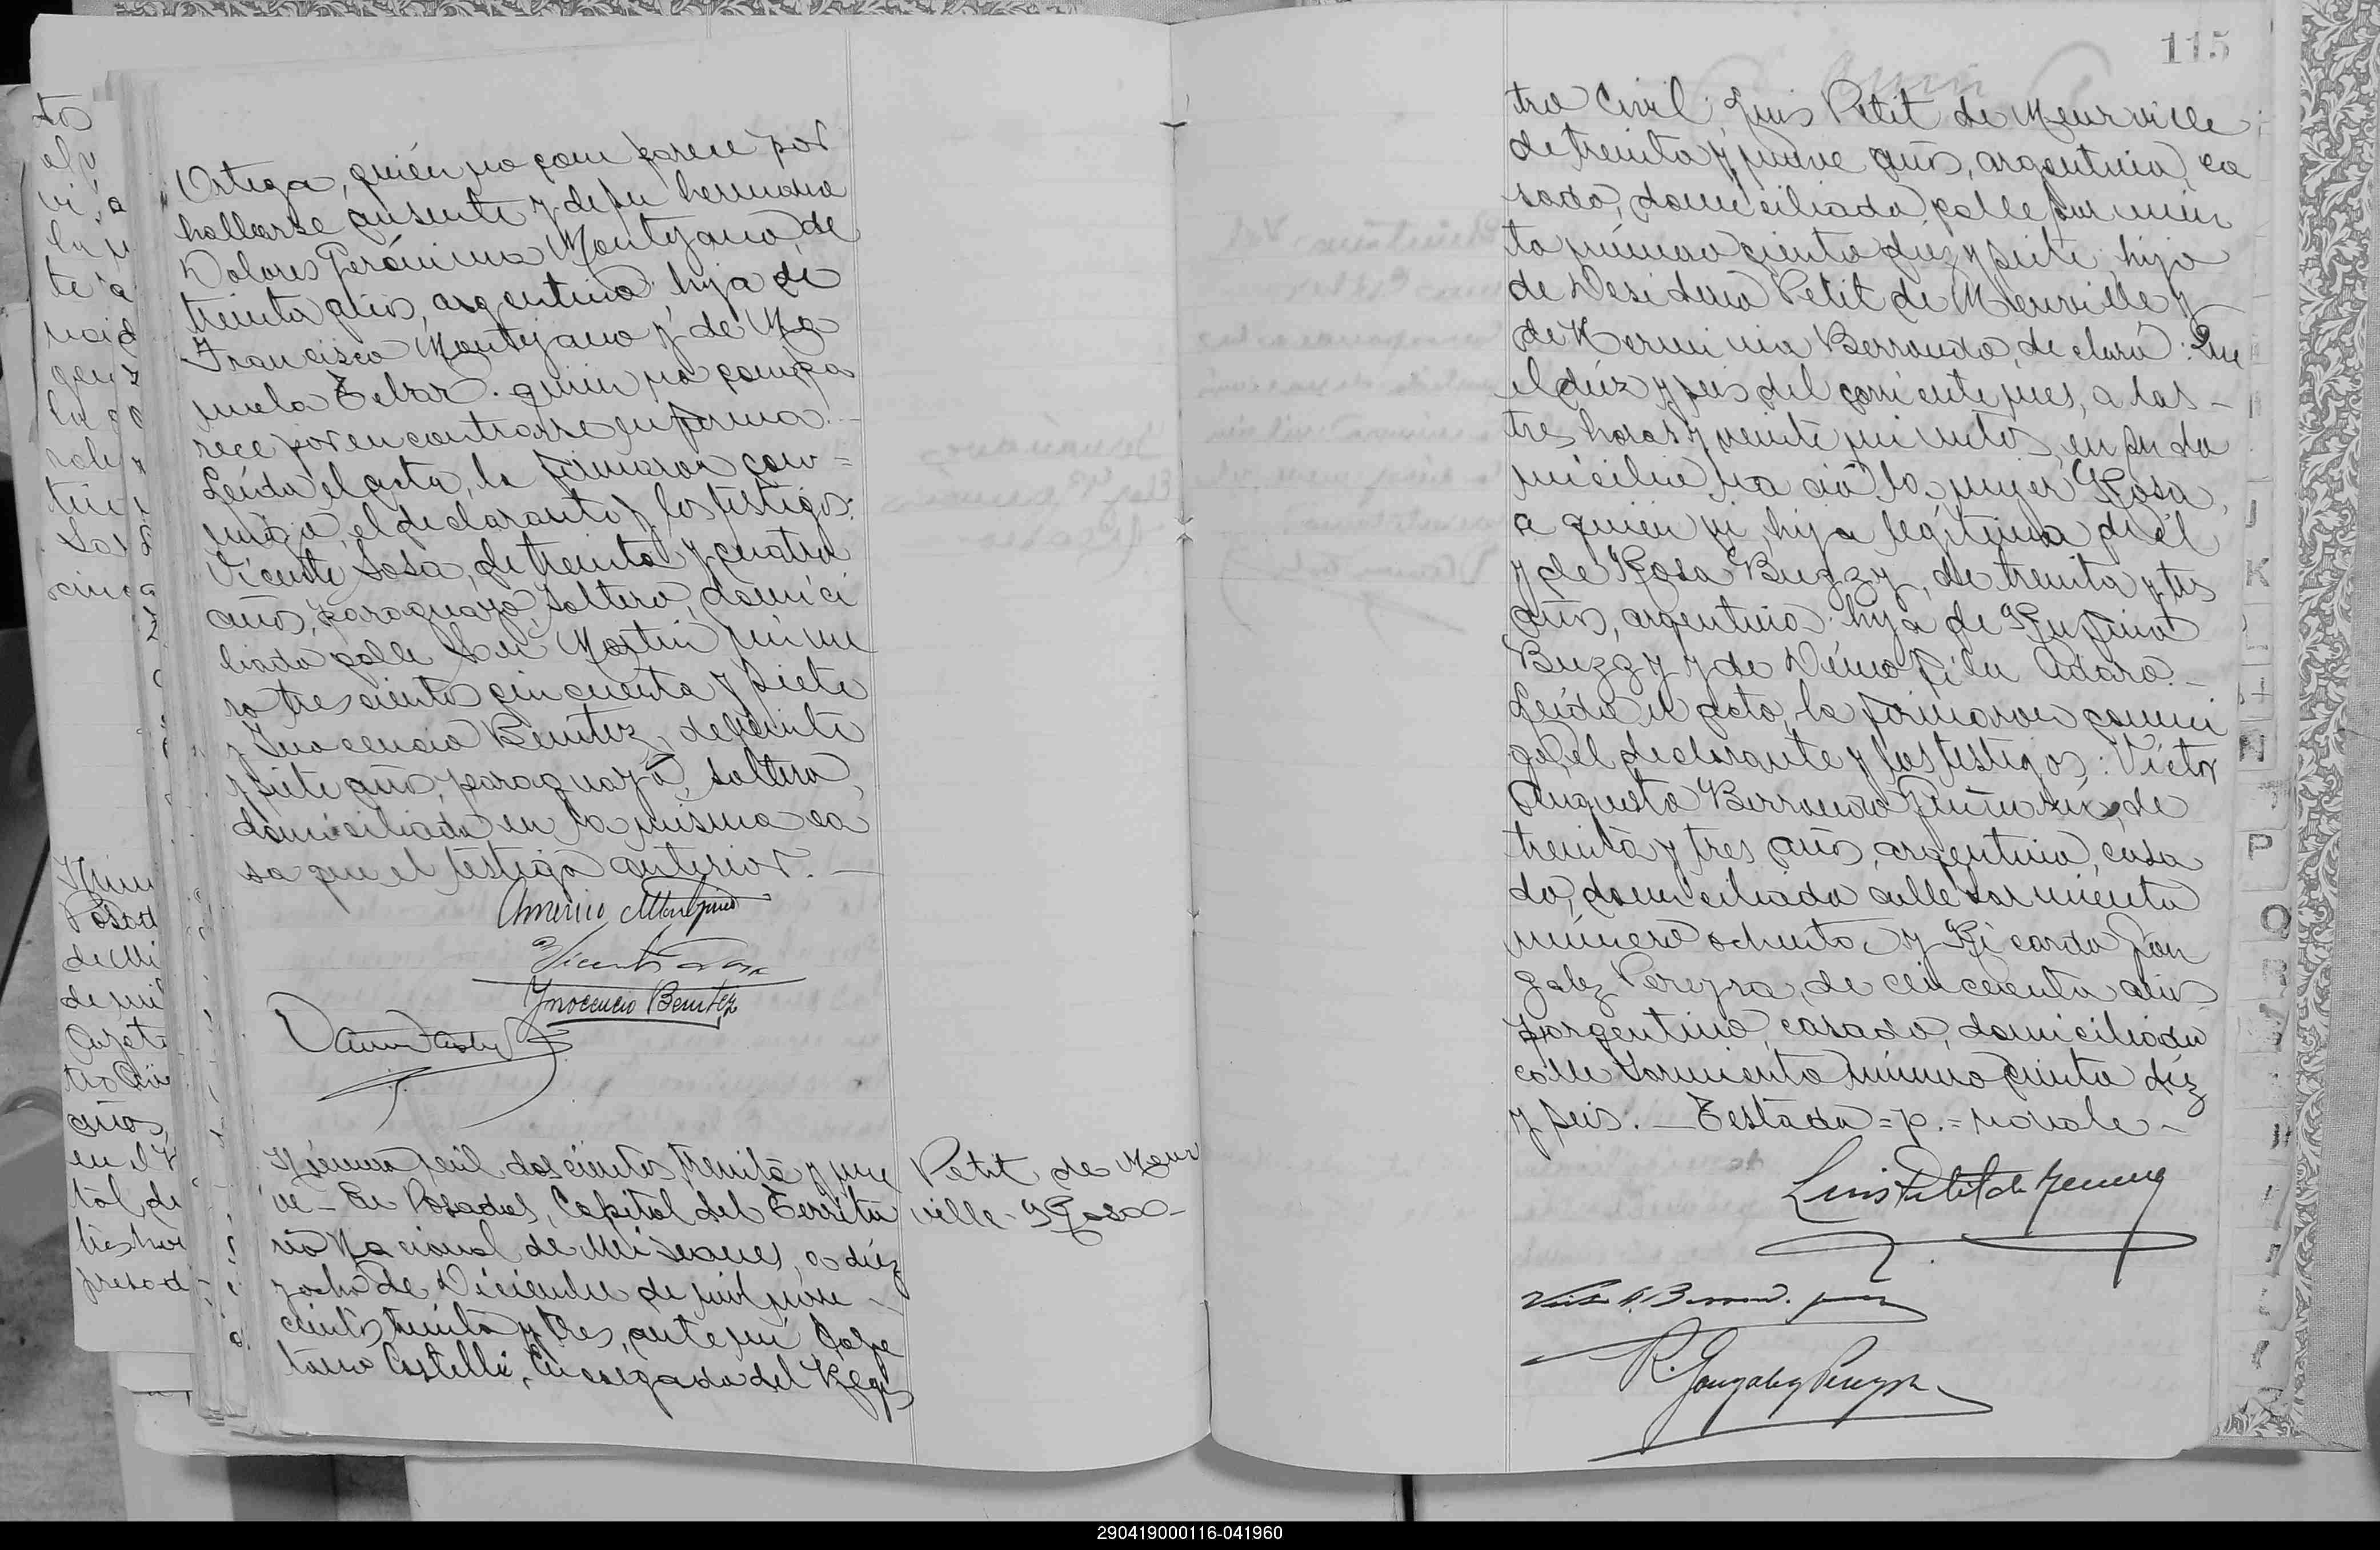 Ortega, quién no compareze por
hallarse ausente y de su hermana
Dolores Gerónima Montejano, de
treinta años, argentina hija de
Francisco Montejano y de Ma
nuela Tebar. quien no compa
rece por encontrarse enferma.-
Leída el acta, la firmaron con-
migo, el declarante y los testigos:
Vicente Sosa, de treinta y cuatro
años, paraguayo, soltero, domici
liado calle San Martin núme
ro trescientos cincuenta y siete
y Inocencio Benitez, de veinte
y siete años, paraguayo, soltero,
domiciliado en la misma ca
sa que el testigo anterior.-
Americo Montejano
Vicente Sosa
Ynocencio Benitez
Número mil doscientos treinta y nue
ve - En Posadas, Capital del Territo
rio Nacional de Misiones, a diéz
y ocho de Diciembre de mil nove
cientos treinta y tres, ante mi Caye
tano Castelli, Encargado del Regis
Petit de Meur
ville - Rosa -
115
tro Civil, Luis Petit de Meurville
de treinta y nueve años, argentino, ca
sado, domiciliado calle Sarmien
to número ciento diéz y siete, hijo
de Desiderio Petit de Meurville y
de Herminia Berrondo, declaró: Que
el diéz y seis del corriente mes, a las -
tres horas y veinte minutos, en su do
micilio nació la mujer Rosa,
a quien vi, hija legítima de él
y de Rosa Buzzy, de treinta y tres
años, argentina. hija de Rufino
Buzzy y de Demofila Adaro.-
Leída el acta, la firmaron conmi
go, el declarante y los testigos: Victor
Augusto Berrondo Guiñazú, de
treinta y tres años, argentino, casa
do, domiciliado calle Sarmiento
número ochenta y Ricardo Gon
zalez Pereyra, de cincuenta años
p argentino, casado, domiciliado
calle Sarmiento número ciento diéz
y seis. - Testado = p. = no vale -
Luis Petit de Meurville
R. Gonzalez Pereyra
290419000116-041960